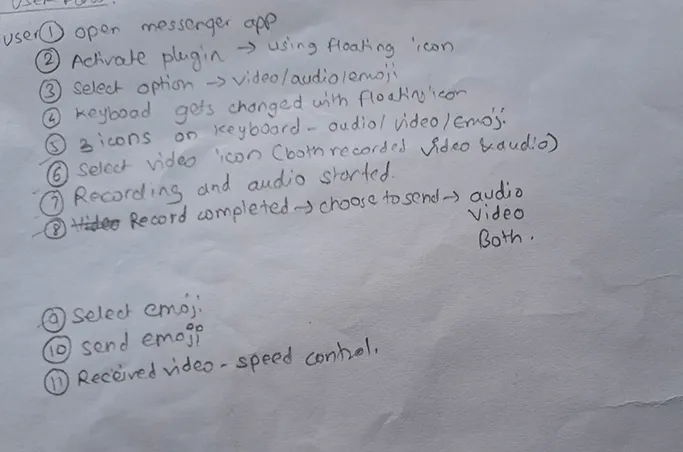 User Flow:
User ① open messenger app
② Activate plugin → using floating icon
③ Select option → video/audio/emoji
④ Keyboad gets changed with floating icon
⑤ 3 icons on keyboard - audio/video/emoji
⑥ Select video icon (both recorded video & audio)
⑦ Recording and audio started.
⑧ Video Record completed → choose to send → audio
video
Both.
⑨ Select emoji
⑩ Send emoji
⑪ Received video - speed control.